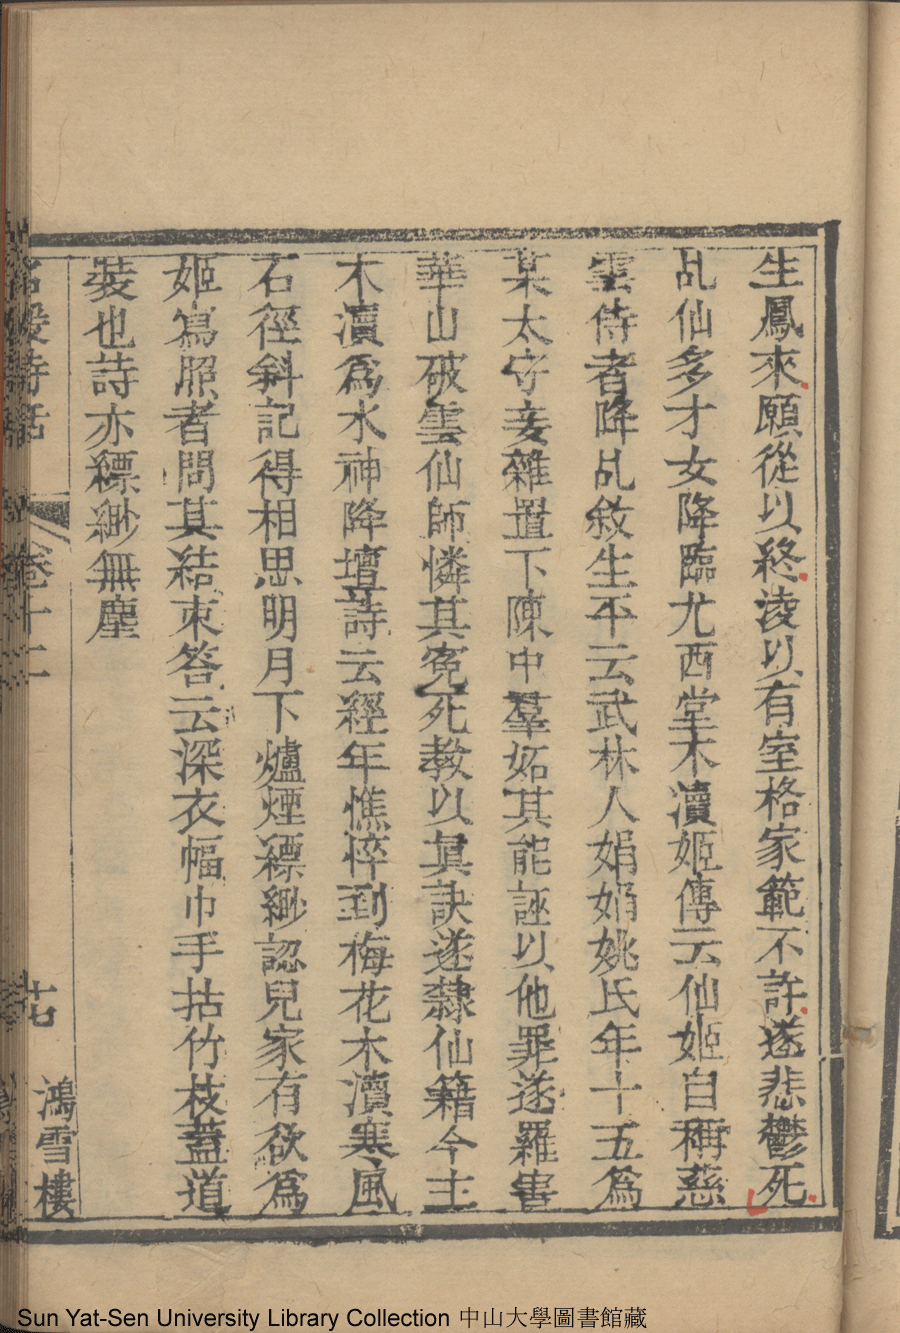 生鳳來願從以終淩以有室格家範不許遂悲鬱死
乩仙多才女降臨尤西堂木瀆姬傳云仙姬自稱慈
雲侍者降乩敘生平云武林人娟娟姚氏年十五爲
某太守妾雜置下陳中羣妬其能誣以他罪遂罹害
華山破雲仙師憐其寃死教以眞訣遂隸仙籍今主
木瀆爲水神降壇詩云經年憔悴到梅花木瀆寒風
石徑斜記得相思明月下爐煙縹緲認兒家有欲爲
姬寫照者問其結束答云深衣幅巾手拈竹枝蓋道
裝也詩亦縹緲無塵
名媛詩話
卷十二
十七
鴻雪樓
Sun Yat-Sen University Library Collection 中山大學圖書館藏